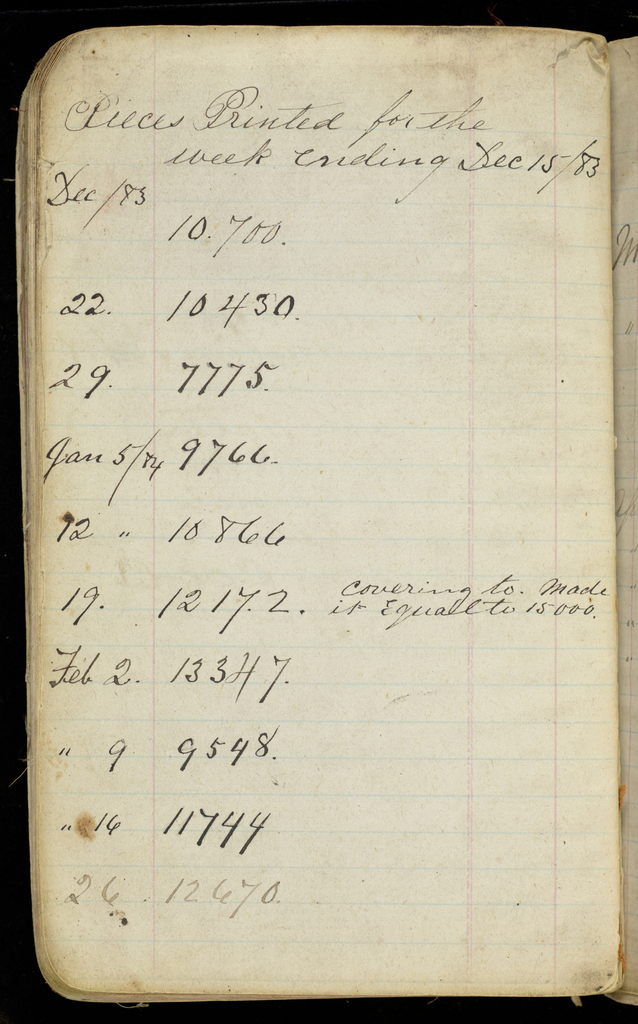 Pieces Printed for the
week ending Dec 15/83
Dec /83
10.700.
22. 10430.
29. 7775.
Jan 5/84 9766.
12 " 10866
19. 12172. covering to. Made
it Equal to 15000.
Feb 2. 13347.
" 9 9548.
" 16 11744
26. 12670.